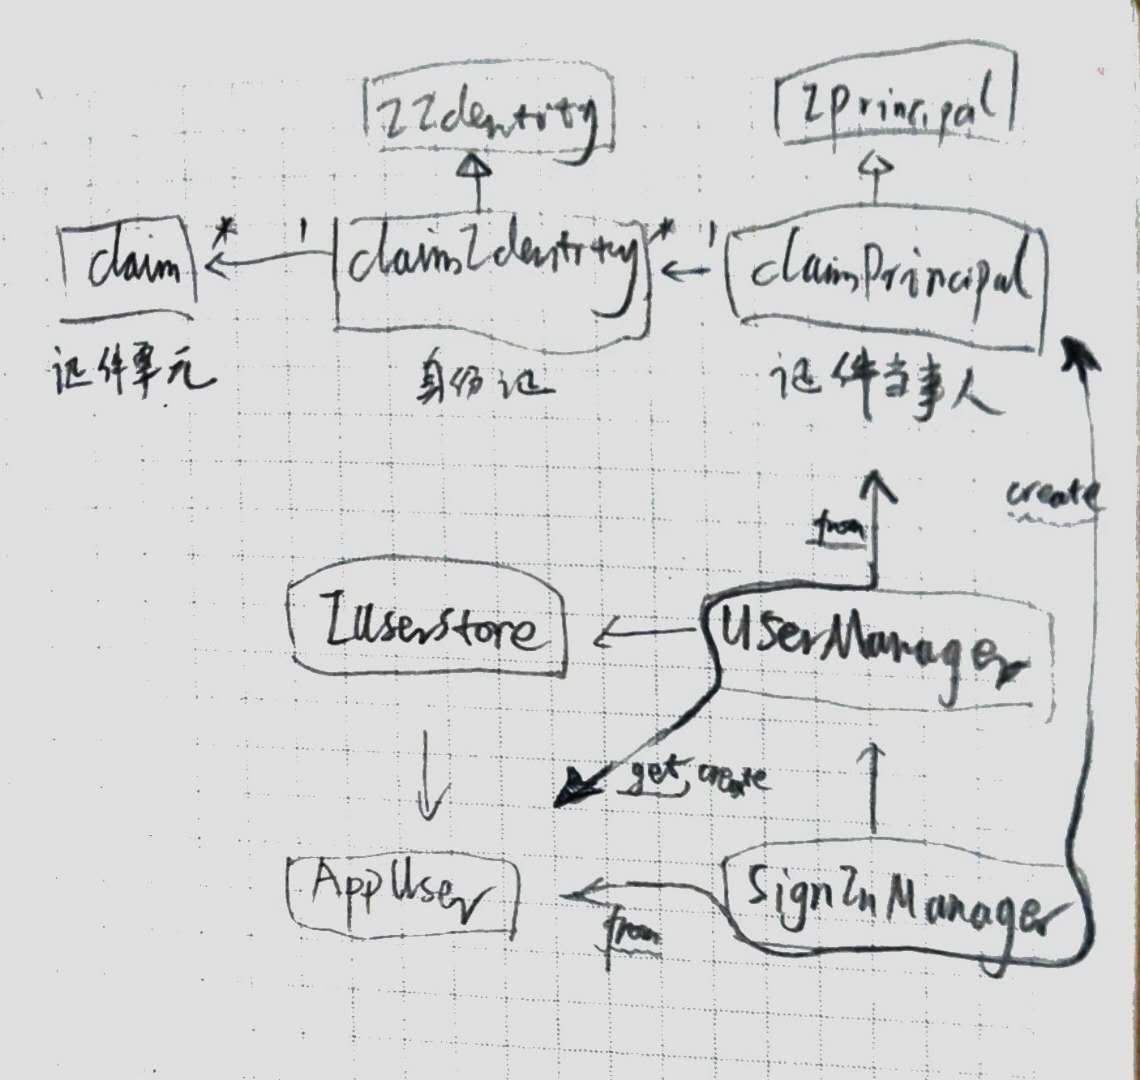 IIdentity
IPrincipal
claim * 1 claimIdentity * 1 claimPrincipal
证件单元 身份证 证件当事人
create
from
IUserStore UserManager
get, create
AppUser SignInManager
from